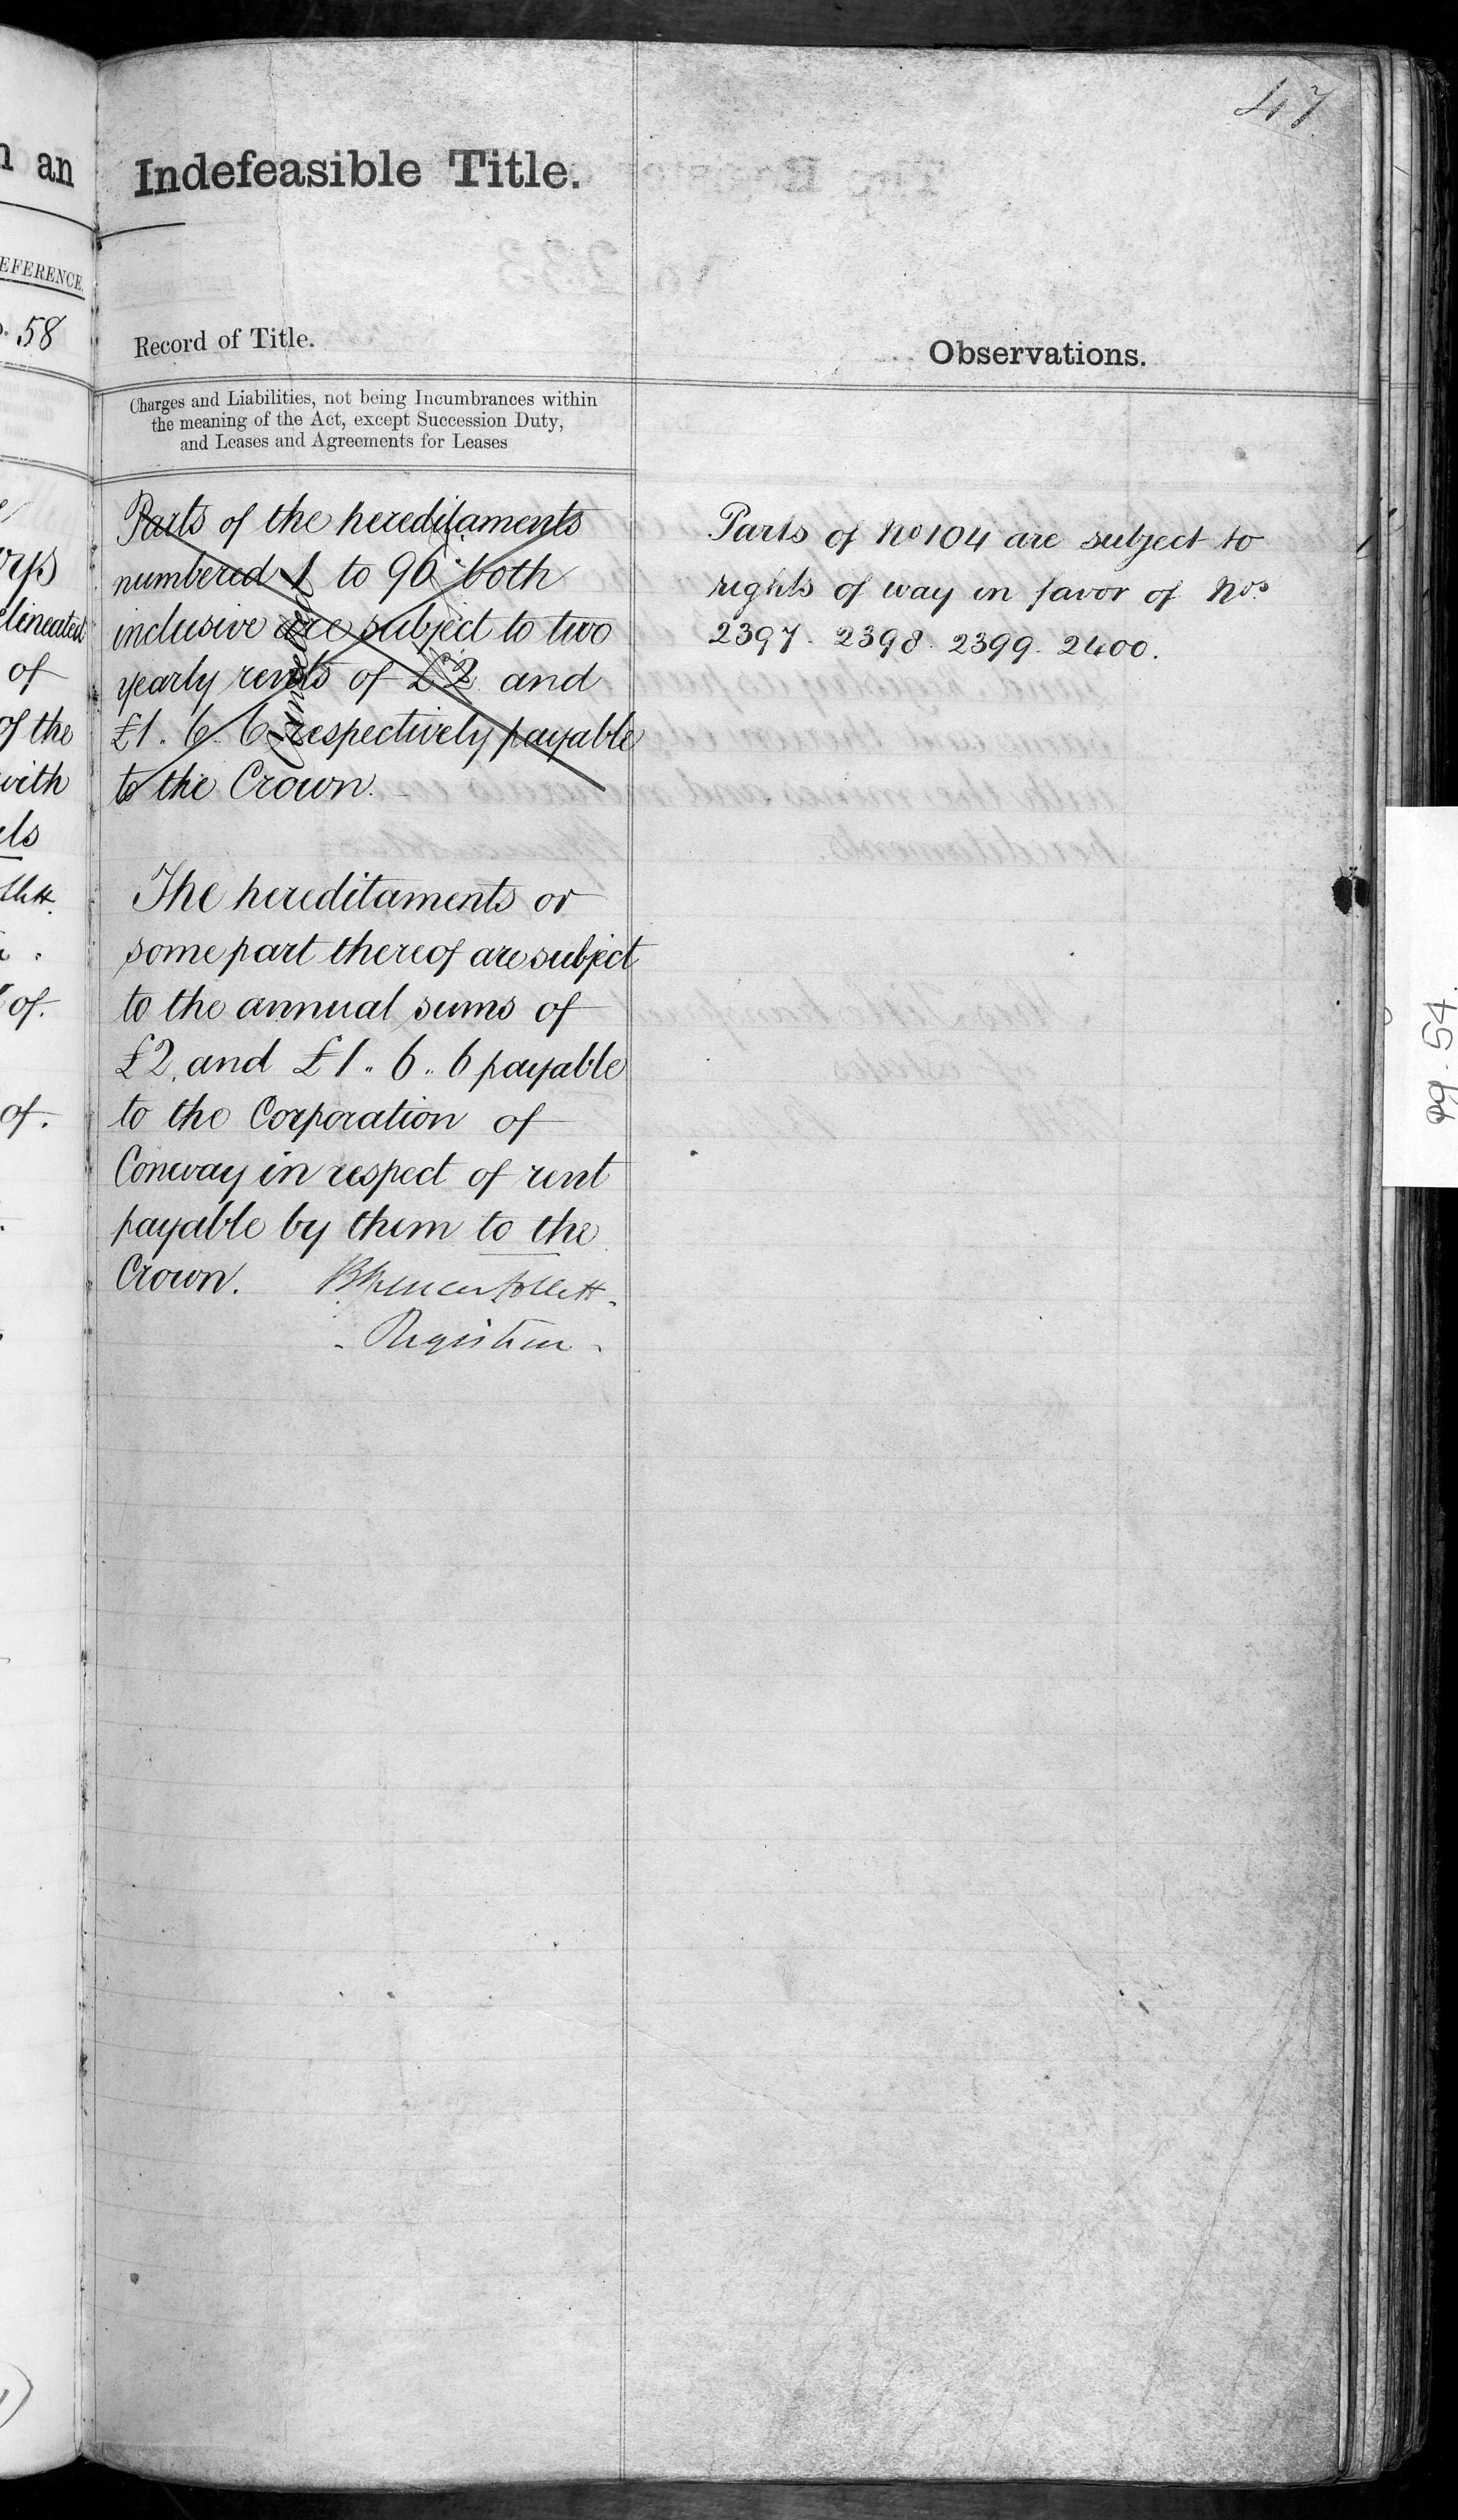 47
n an
Indefeasible Title.
EFERENCE.
58
Record of Title.
Observations.
Charges and Liabilities, not being Incumbrances within
the meaning of the Act, except Succession Duty,
and Leases and Agreements for Leases
Parts of the hereditaments
numbered 1 to 96 both
inclusive are subject to two
yearly rents of £2 and
£1. 6. 6 respectively payable
to the Crown.
Cancelled
The hereditaments or
some part thereof are subject
to the annual sums of
£2, and £1.. 6.. 6 payable
to the Corporation of
Conway in respect of rent
payable by them to the
Crown.
Brent Spencer Follett
- Registrar -
Parts of No 104 are subject to
rights of way in favor of Nos
2397. 2398. 2399. 2400.
lineated
of
of the
with
of.
of.
99.54.